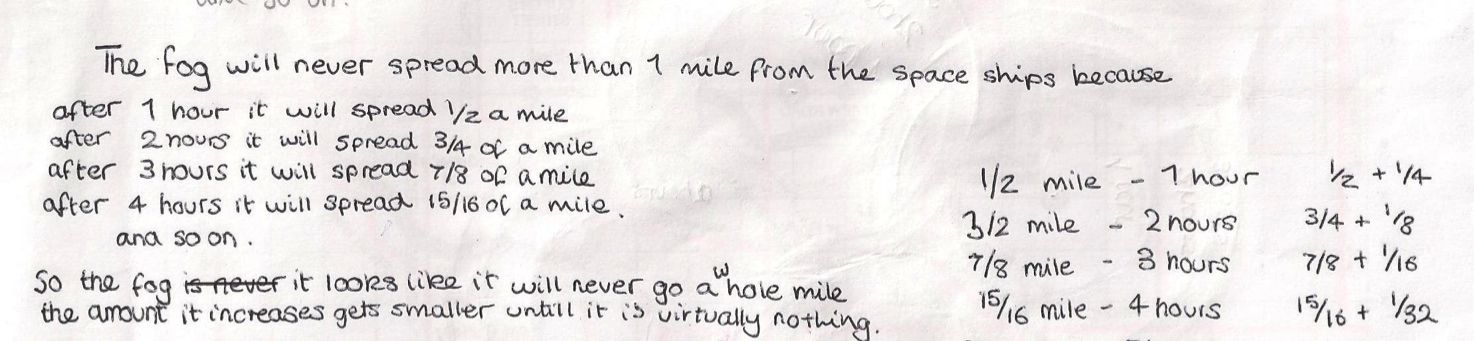 The fog will never spread more than 1 mile from the space ships because
after 1 hour it will spread 1/2 a mile
after 2 hours it will spread 3/4 of a mile
after 3 hours it will spread 7/8 of a mile
after 4 hours it will spread 15/16 of a mile.
and so on.
So the fog is never it looks like it will never go a whole mile
the amount it increases gets smaller untill it is virtually nothing.
1/2 mile - 1 hour 1/2 + 1/4
3/2 mile - 2 hours 3/4 + 1/8
7/8 mile - 3 hours 7/8 + 1/16
15/16 mile - 4 hours 15/16 + 1/32